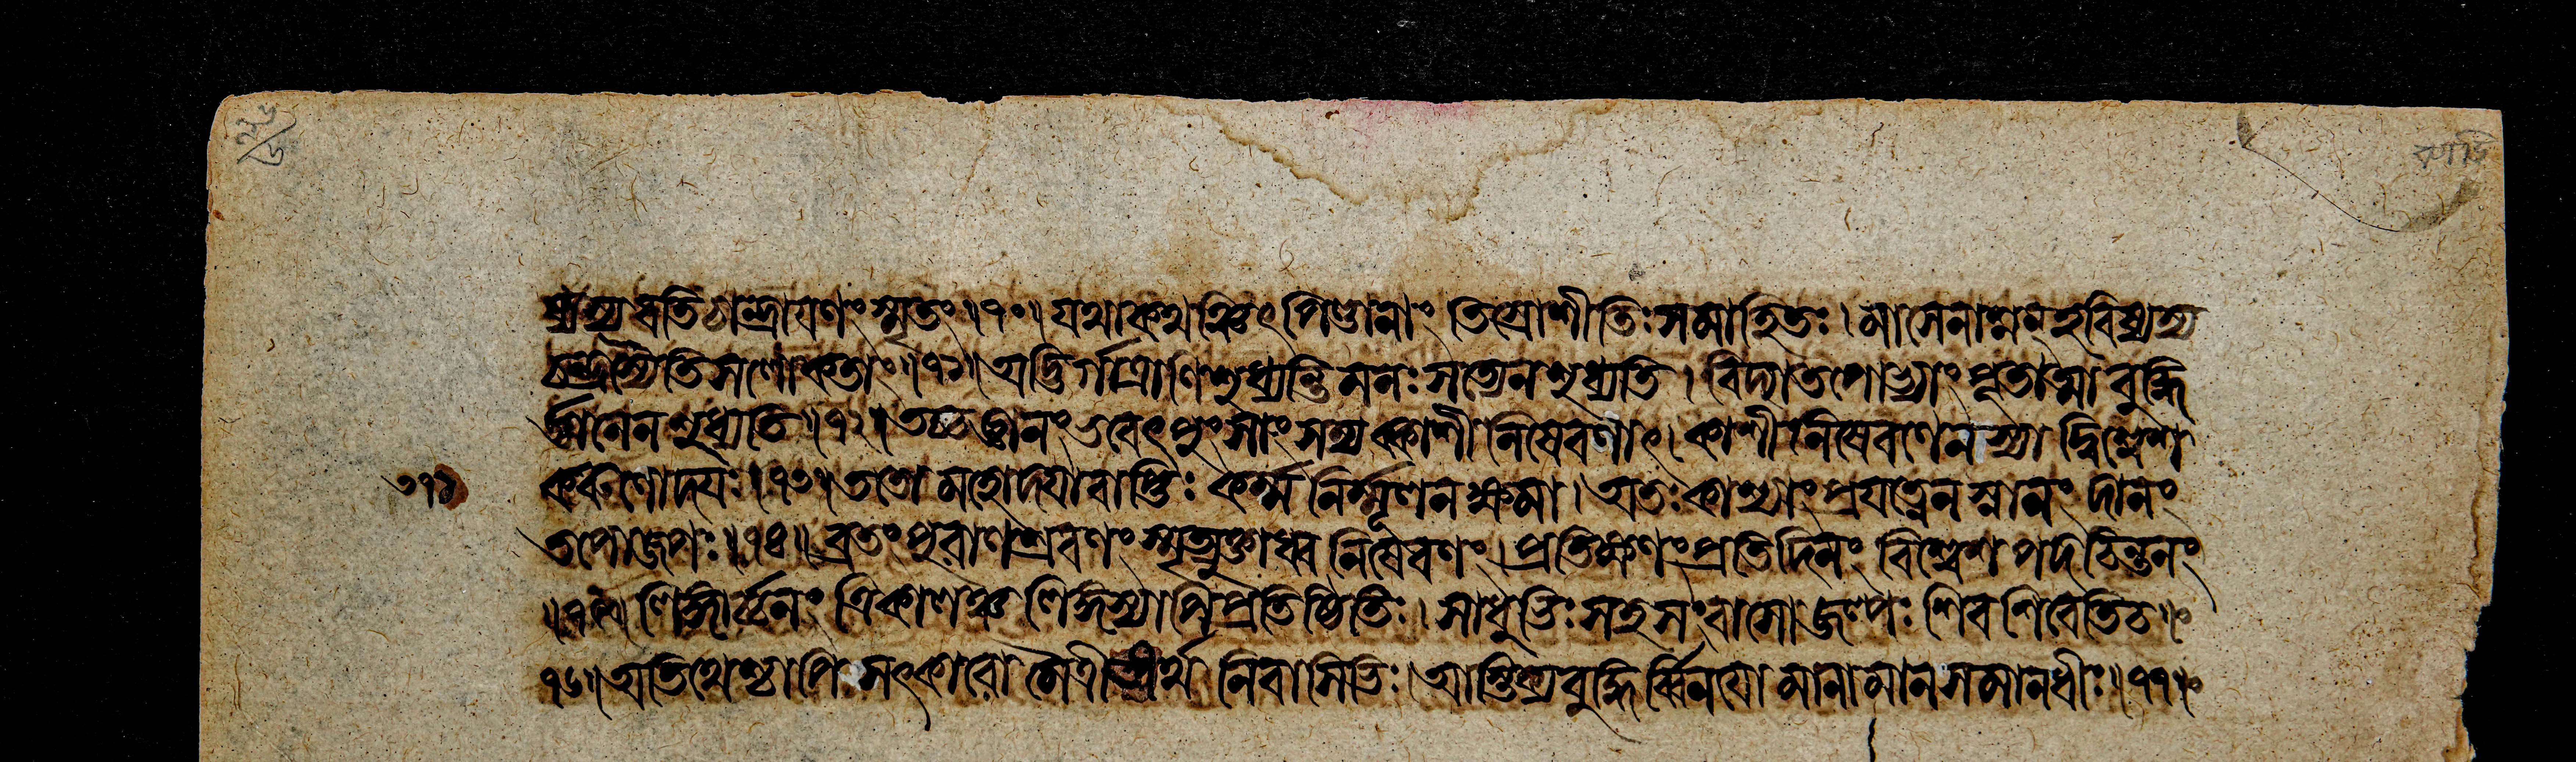 ষ্যস্য ব্রতিচান্দ্রায়ণং স্মৃতং॥৭০॥যথাকথঞ্চিৎ পিণ্ডানাং তিস্রোশীতিঃসমাহিতঃ। মাসেনাশ্নন্ হবিষ্যস্য
চন্দ্রস্যৈতিসলোকতাং॥৭১॥অদ্ভির্গাত্রাণিশুধ্যন্তি মনঃ সত্যেনশুধ্যতি। বিদ্যাতপোভ্যাং ভূতাত্মা বুদ্ধি
র্জ্ঞানেন শুধ্যতি॥৭২॥তচ্চজ্ঞানং ভবেৎ পুংসাং সম্যক্কাশী নিষেবণাৎ।কাশী নিষেবণেনস্যা দ্বিশ্বেশ
করুণোদয়ঃ॥৭৩॥ততো মহোদয়াবাপ্তিঃ কর্ম্ম নির্ম্মূলনক্ষমা। অতঃকাশ্যাং প্রযত্নেন স্নানং দানং
তপোজপঃ॥৭৪॥ব্রতং পুরাণশ্রবণং স্মৃত্যুক্তাধ্ব নিষেবণং। প্রতিক্ষণং প্রতিদিনং বিশ্বেশ পদচিন্তনং
॥৭৫॥লিঙ্গার্চ্চনং ত্রিকালঞ্চ লিঙ্গস্যাপি প্রতিষ্ঠিতিঃ। সাধুভিঃ সহ সংবাসো জল্পঃ শিবশিবেতিচ॥
৭৬॥অতিথেশ্চাপি সৎকারো মৈত্রী তীর্থ নিবাসিভিঃ।আস্তিক্যবুদ্ধি র্ব্বিনয়ো মানামান সমানধীঃ॥৭৭॥